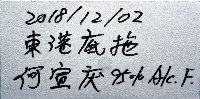 2018/12/02
東港底拖
何宣庆 95% Alc. F.